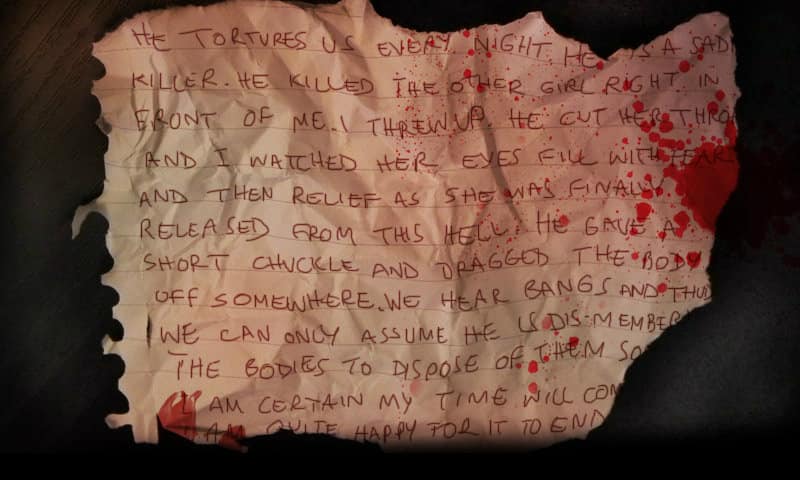 HE TORTURES US EVERY NIGHT HE IS A SAD
KILLER. HE KILLED THE OTHER GIRL RIGHT IN
FRONT OF ME. I THREW UP. HE CUT HER THRO
AND I WATCHED HER EYES FILL WITH FEAR
AND THEN RELIEF AS SHE WAS FINALLY
RELEASED FROM THIS HELL. HE GAVE A
SHORT CHUCKLE AND DRAGGED THE BODY
OFF SOMEWHERE. WE HEAR BANGS AND THUD
WE CAN ONLY ASSUME HE IS DIS-MEMBER
THE BODIES TO DISPOSE OF THEM SO
I AM CERTAIN MY TIME WILL COM
I AM QUITE HAPPY FOR IT TO END